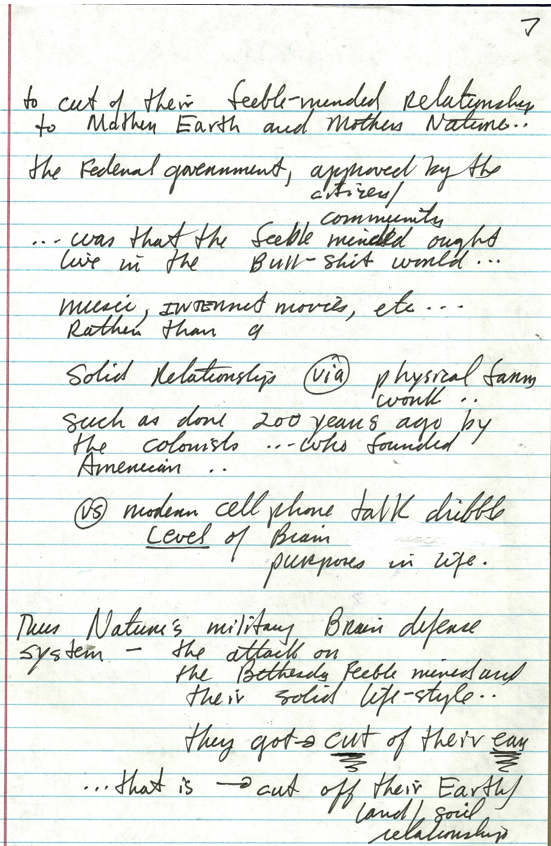 7
to cut of their feeble-minded Relationship
to Mother Earth and Mothers Nature..
the Federal government, approved by the
citizen/
community
... was that the feeble minded ought
live in the Bull-shit world...
music, INTERNet movies, etc...
Rather than a
Solid Relationship via physical farm
work ..
such as done 200 years ago by
the colonists ... who founded
American ..
vs modern cell phone talk dribble
Level of Brain
purposes in life.
Thus Nature's military Brain defense
system - the attack on
the Bethesda Feeble mined and
their solid life-style..
they got → cut of their ear
... that is → cut off their Earth/
land/soil
relationship